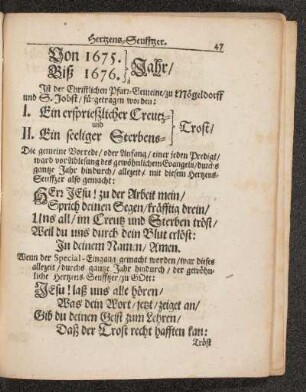 Hertzens-Seufftzer. 47
Von 1675.
Biß 1676. } Jahr/
Ist der Christlichen Pfarr-Gemeine/ zu Mögeldorff
und S. Jobst/ fürgetragen worden:
I. Ein ersprießlicher Creutz-
und } Trost/
II. Ein seeliger Sterbens-
Die gemeine Vorrede/ oder Anfang/ einer jeden Predigt/
ward vor Ablesung des gewöhnlichem Evangelii/ durchs
gantze Jahr hindurch/ allezeit/ mit diesem Hertzens-
Seufftzer also gemacht:
HErr JEsu! zu der Arbeit mein/
Sprich deinen Segen/ kräfftig drein/
Uns all/ im Creutz und Sterben tröst/
Weil du uns durch dein Blut erlöst:
In deinem Namen/ Amen.
Wenn der Special-Eingang gemacht worden/ war dieses
allezeit/ durchs gantze Jahr hindurch/ der gewöhn-
liche Hertzens Seufftzer/ zu GOtt:
JEsu! laß uns alle hören/
Was dein Wort/ jetzt/ zeiget an/
Gib du deinen Geist zum Lehren/
Daß der Trost recht hafften kan:
Tröst